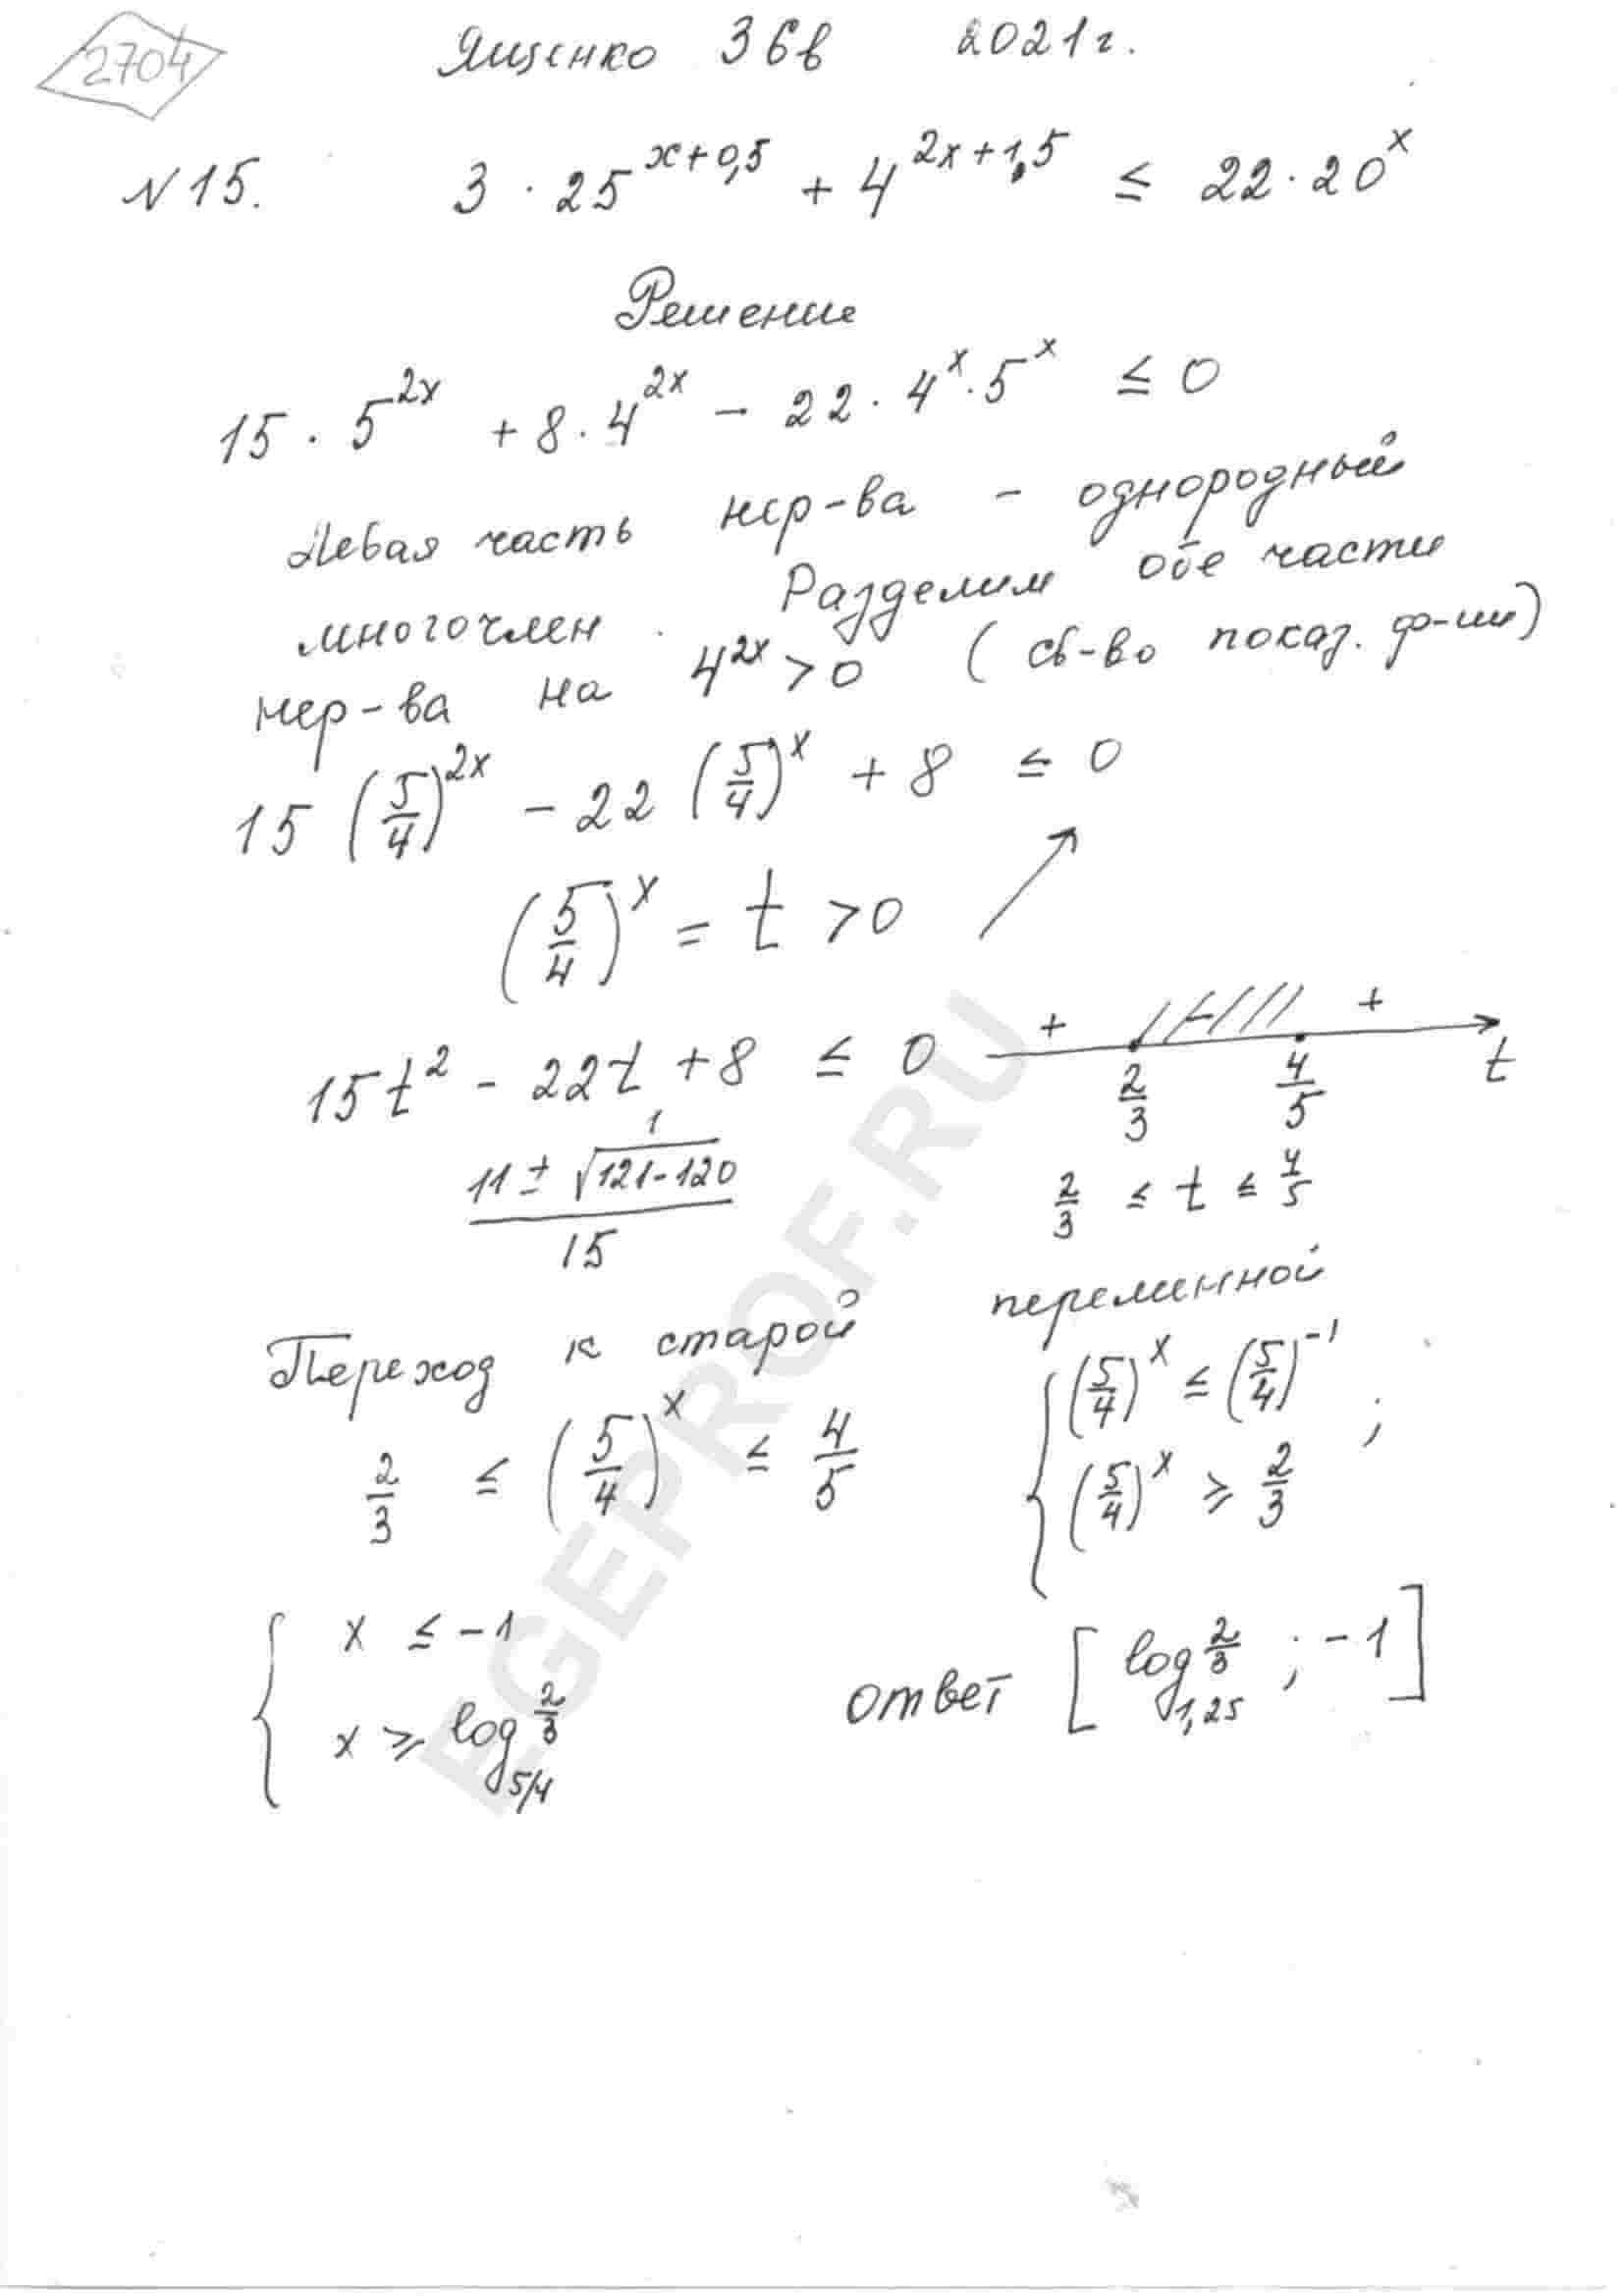 2704
Ященко 36в 2021г.
N15. 3 · 25^{x+0,5} + 4^{2x+1,5} ≤ 22 · 20^x
Решение
15 · 5^{2x} + 8 · 4^{2x} − 22 · 4^x · 5^x ≤ 0
Левая часть нер-ва – однородный
многочлен. Разделим обе части
нер-ва на 4^{2x} > 0 (св-во показ. ф-ии)
15 (5/4)^{2x} − 22 (5/4)^x + 8 ≤ 0
(5/4)^x = t > 0
15t² − 22t + 8 ≤ 0
1
11 ± √121−120
15
+ − +
2/3 4/5 t
2/3 ≤ t ≤ 4/5
Переход к старой переменной
2/3 ≤ (5/4)^x ≤ 4/5
{ (5/4)^x ≤ (5/4)^{−1} ;
(5/4)^x ≥ 2/3
{ x ≤ −1
x ≥ log_{5/4} 2/3
ответ [ log_{1,25} 2/3 ; −1 ]
EGEPROF.RU